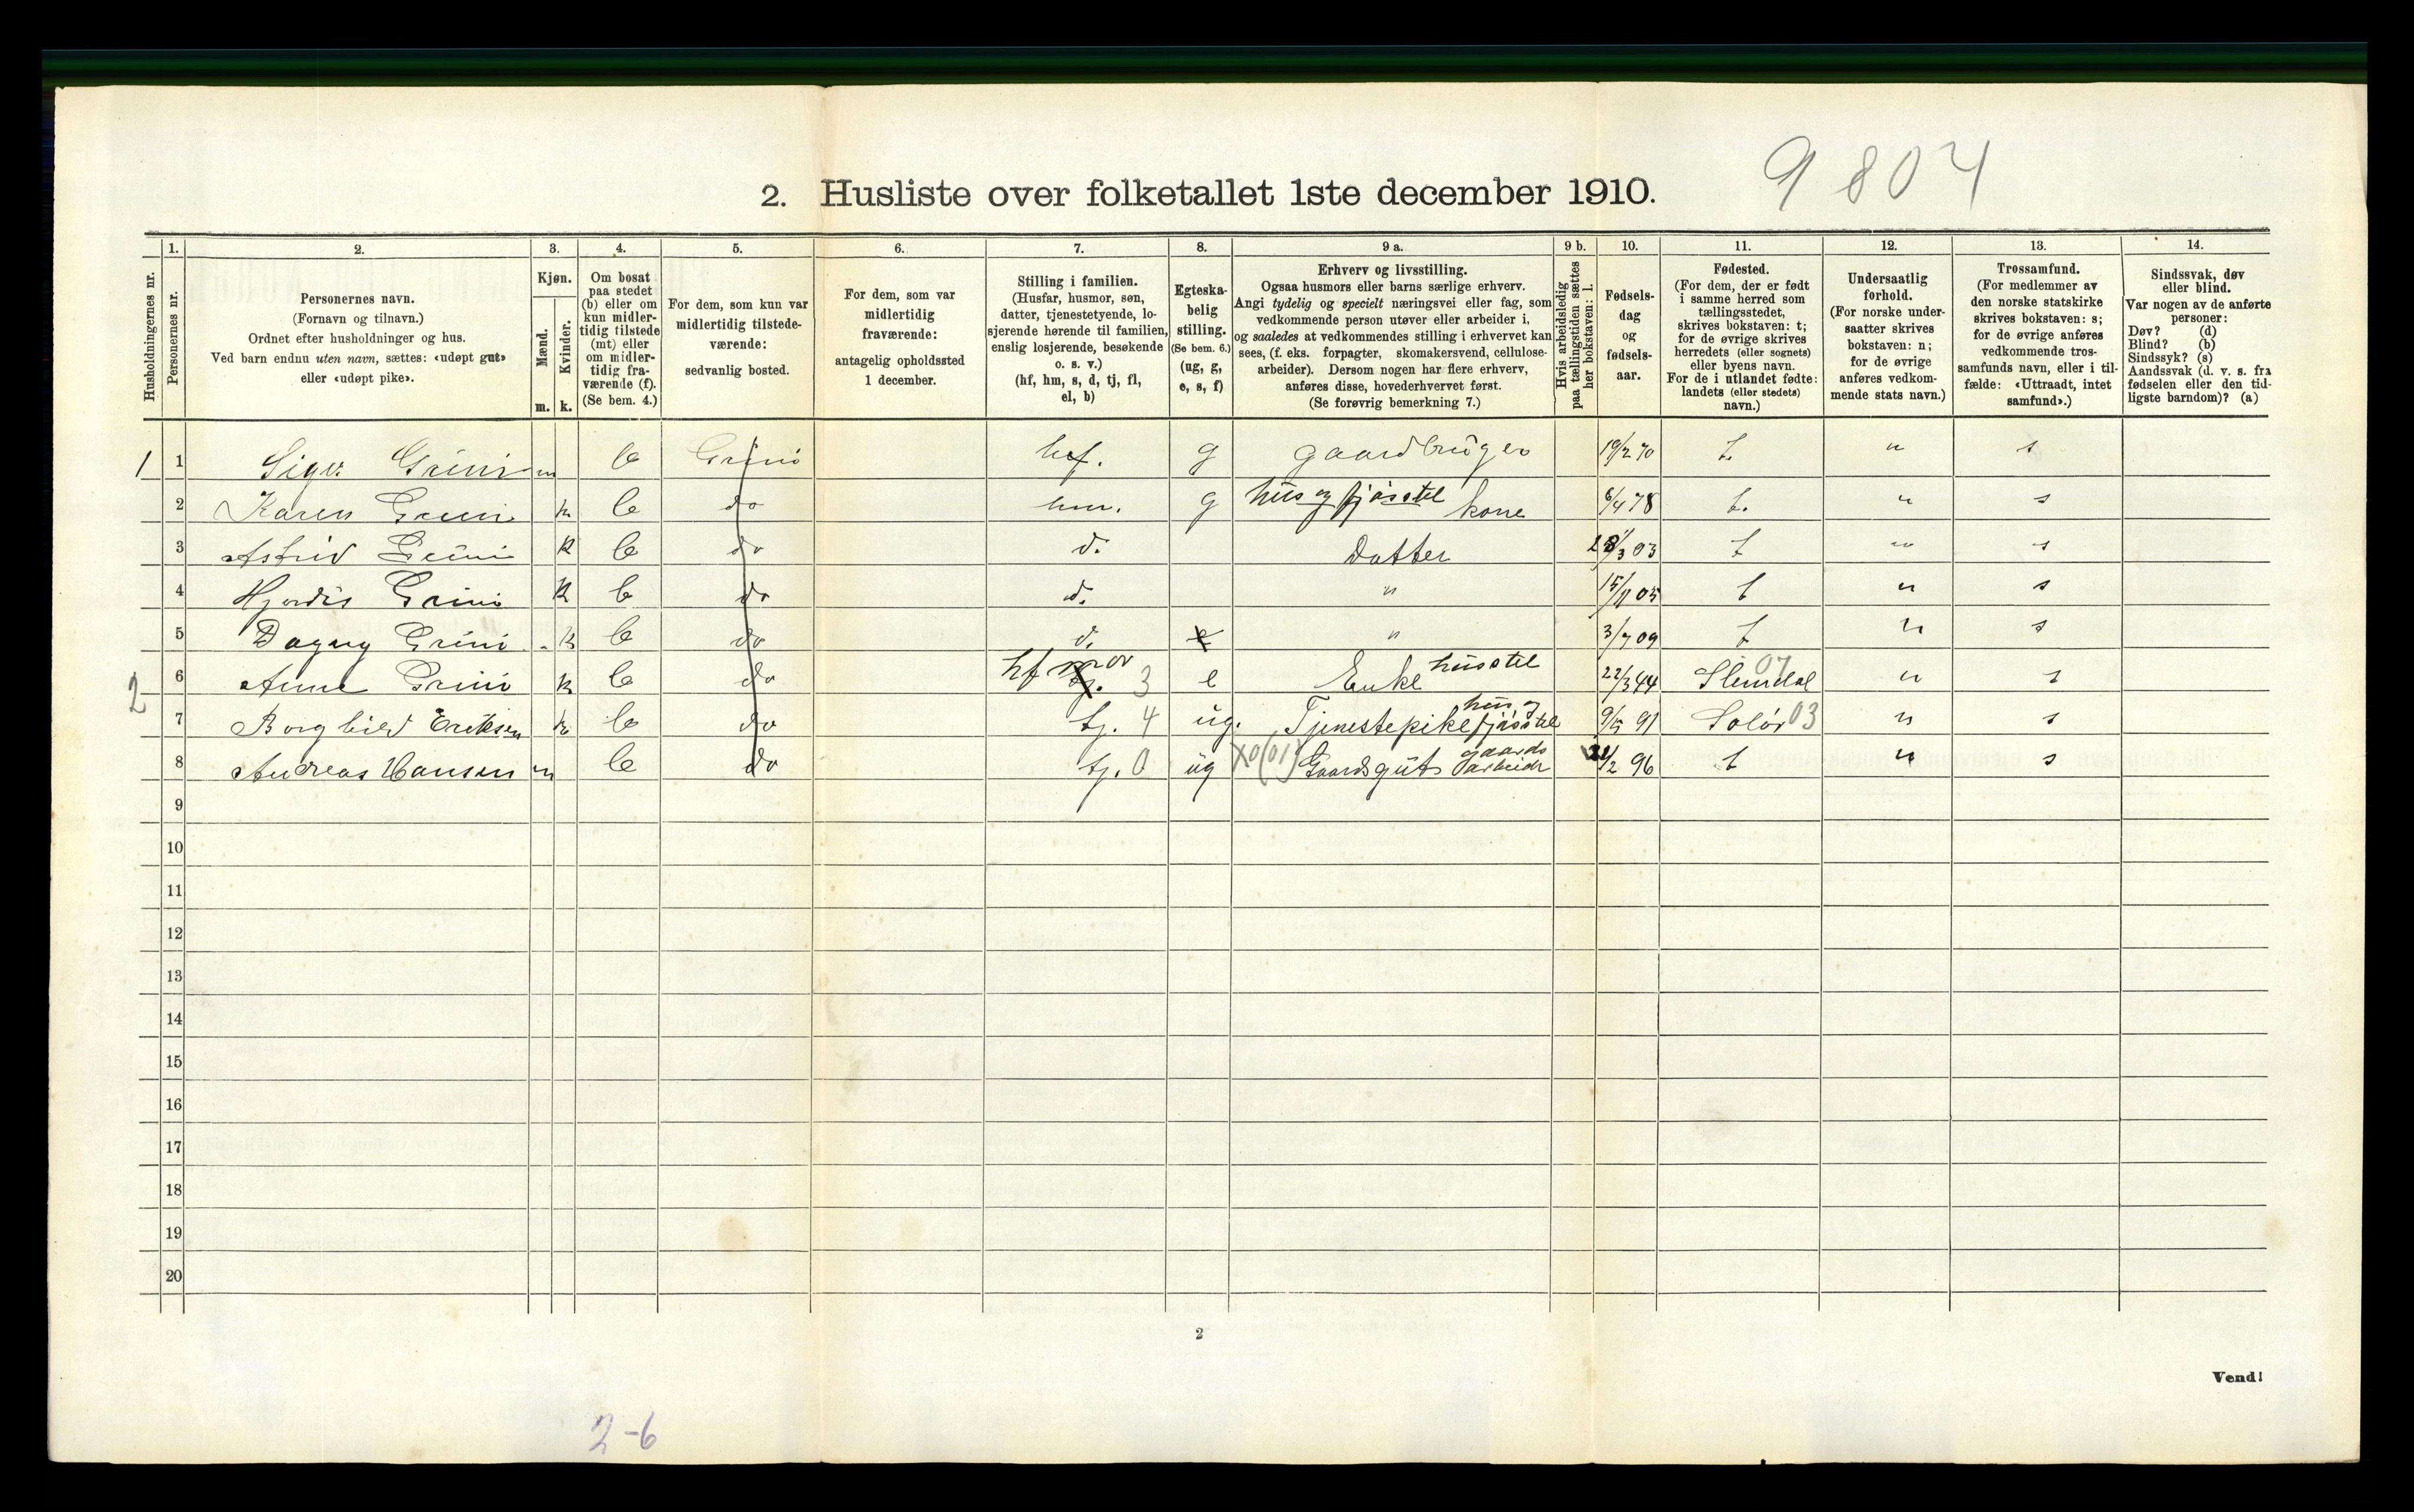 9804
2. Husliste over folketallet 1ste december 1910.
Husholdningernes nr.
1. Personernes nr.
2. Personernes navn. (Fornavn og tilnavn.) Ordnet efter husholdninger og hus. Ved barn endnu uten navn, sættes: «udøpt gut» eller «udøpt pike».
3. Kjøn. Mænd. m. Kvinder. k.
4. Om bosat paa stedet (b) eller om kun midlertidig tilstede (mt) eller om midlertidig fraværende (f). (Se bem. 4.)
5. For dem, som kun var midlertidig tilstedeværende: sedvanlig bosted.
6. For dem, som var midlertidig fraværende: antagelig opholdssted 1 december.
7. Stilling i familien. (Husfar, husmor, søn, datter, tjenestetyende, losjerende hørende til familien, enslig losjerende, besøkende o. s. v.) (hf, hm, s, d, tj, fl, el, b)
8. Egteskabelig stilling. (Se bem. 6.) (ug, g, e, s, f)
9 a. Erhverv og livsstilling. Ogsaa husmors eller barns særlige erhverv. Angi tydelig og specielt næringsvei eller fag, som vedkommende person utøver eller arbeider i, og saaledes at vedkommendes stilling i erhvervet kan sees, (f. eks. forpagter, skomakersvend, cellulosearbeider). Dersom nogen har flere erhverv, anføres disse, hovederhvervet først. (Se forøvrig bemerkning 7.)
9 b. Hvis arbeidsledig paa tællingstiden sættes her bokstaven: l.
10. Fødselsdag og fødselsaar.
11. Fødested. (For dem, der er født i samme herred som tællingsstedet, skrives bokstaven: t; for de øvrige skrives herredets (eller sognets) eller byens navn. For de i utlandet fødte: landets (eller stedets) navn.)
12. Undersaatlig forhold. (For norske undersaatter skrives bokstaven: n; for de øvrige anføres vedkommende stats navn.)
13. Trossamfund. (For medlemmer av den norske statskirke skrives bokstaven: s; for de øvrige anføres vedkommende trossamfunds navn, eller i tilfælde: «Uttraadt, intet samfund».)
14. Sindssvak, døv eller blind. Var nogen av de anførte personer: Døv? (d) Blind? (b) Sindssyk? (s) Aandssvak (d. v. s. fra fødselen eller den tidligste barndom)? (a)
1 1 Sigv. Grini m b Grini hf. g gaardbruger 19/2 70 t. n s
2 Karen Grini k b do hm. g hus og fjøsstel kone 6/4 78 t. n s
3 Astrid Grini k b do d. Datter /3 03 t n s
4 Hjørdis Grini k b do d. " 15/11 05 t n s
5 Dagny Grini k b do d. " 3/7 09 t n s
2 6 Anne Grini k b do hf mor 3 e Enke husstel 22/3 44 07 n s
7 Borghild Eriksen k b do tj. 4 ug. Tjenestepike hus og fjøsstel 9/5 91 Solør 03 n s
8 Andreas Hansen m b do tj. 0 ug X0(01) Gaardsgut gaardsarbeider /2 96 t n s
9
10
11
12
13
14
15
16
17
18
19
20
2
Vend!
2-6